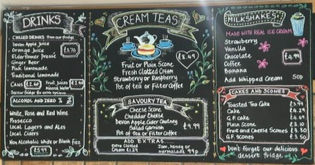 DRINKS
CHILLED DRINKS from our fridge
Devon Apple Juice
Orange Juice
Elderflower Pressé
Ginger Beer
Pink Lemonade
Traditional Lemonade
Cans
Fruit Juices
ALCOHOL AND ZERO %
White, Rose and Red Wine
Prosecco
Local Lagers and Ales
Local Ciders
Non Alcoholic White or Blank Fizz
CREAM TEAS
Fruit or Plain Scone
Fresh Clotted Cream
Strawberry or Raspberry
Pot of tea or Filter Coffee
SAVOURY TEA
Cheese Scone
Cheddar Cheese
Devon Apple Cider Chutney
Salad Garnish
Pot of Tea or Filter Coffee
EXTRAS
Extra Clotted Cream
Jam, honey or marmalade
MILKSHAKES
MADE WITH REAL ICE CREAM
Strawberry
Vanilla
Chocolate
Coffee
Banana
Add Whipped Cream 50p
CAKES AND SCONES
Toasted Tea Cake
Cake
G.F. Cake
Plain Scone
Fruit and Cheese Scones
G.F. Scones
Don't forget our delicious
fudge, dessert